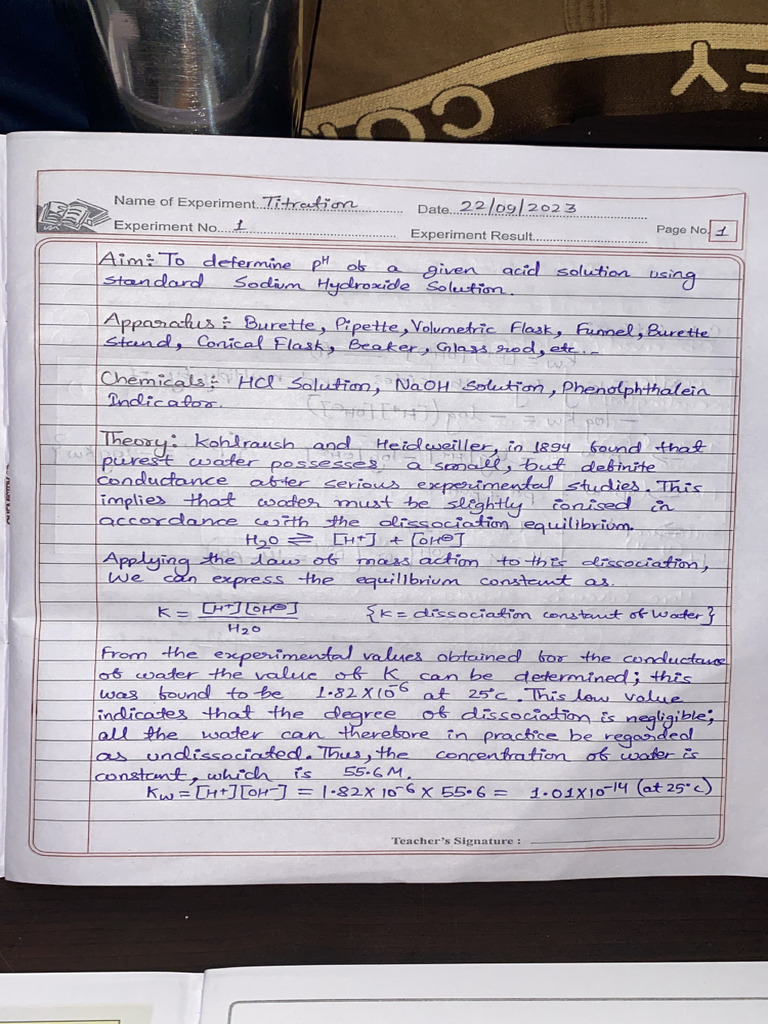 CO
Y
Name of Experiment Titration Date 22/09/2023
Experiment No. 1 Experiment Result Page No. 1
Aim:- To determine pH of a given acid solution using
standard Sodium Hydroxide Solution.
Apparatus:- Burette, Pipette, Volumetric Flask, Funnel, Burette
Stand, Conical Flask, Beaker, Glass rod, etc..-
Chemicals:- HCl Solution, NaOH Solution, Phenolphthalein
Indicator.
Theory:- Kohlraush and Heidweiller, in 1894 found that
purest water possesses a small, but definite
conductance after serious experimental studies. This
implies that water must be slightly ionised in
accordance with the dissociation equilibrium.
H₂O ⇌ [H+] + [OH⊖]
Applying the law of mass action to this dissociation,
We can express the equilibrium constant as.
K = [H+][OH⊖] {K = dissociation constant of Water}
H₂O
From the experimental values obtained for the conductance
of water the value of K can be determined; this
was found to be 1.82 X 10⁻⁶ at 25°C. This low value
indicates that the degree of dissociation is negligible;
all the water can therefore in practice be regarded
as undissociated. Thus, the concentration of water is
constant, which is 55.6 M.
Kw = [H+][OH⁻] = 1.82 X 10⁻⁶ X 55.6 = 1.01X10⁻¹⁴ (at 25°C)
Teacher's Signature :